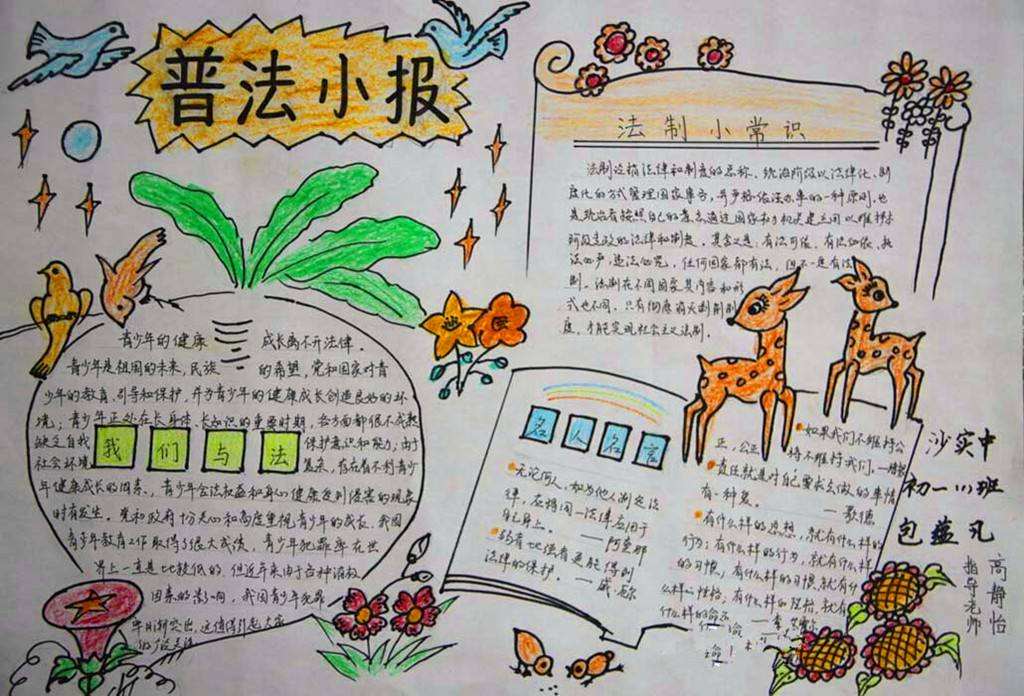 普法小报
法制小常识
法制是指法律和制度的总称，统治阶级以法律化、制
度化的方式管理国家事务，并严格依法办事的一种原则。也
是统治者按照自己的意志通过国家权力机关建立的用以维护本
阶级专政的法律和制度，其含义是：有法可依，有法必依，执
法必严，违法必究，任何国家都有法，但不一定有法
制。法制在不同国家其内容和形
式也不同，只有彻底消灭剥削制
度，才能实现社会主义法制。
青少年的健康成长离不开法律。
青少年是祖国的未来，民族的希望，党和国家对青
少年的教育、引导和保护，并为青少年的健康成长创造良好的环
境；青少年正处在长身体、长知识的重要时期，各方面都很不成熟
缺乏自我保护意识和能力，由于
社会环境复杂，存在着不利青少
我们与法
年健康成长的因素，青少年合法权益和身心健康受到侵害的现象
时有发生。党和政府十分关心和高度重视青少年的成长，我国
青少年教育工作取得了很大成绩，青少年犯罪率在世
界上一直是比较低的，但近年来由于各种消极
因素的影响，我国青少年犯罪
名人名言
无论何人，如为他人制定法
律，应将同一法律应用于
自己身上。——阿奎那
弱者比强者更能得到
法律的保护。——威·厄尔
如果我们不维持公
正，公正将不维持我们。——培根
责任就是对自己要求去做的事情
有一种爱。——歌德
有什么样的思想，就有什么样的
行为；有什么样的行为，就有什么样
的习惯；有什么样的习惯就有什
么样的性格，有什么样的性格，就有
什么样的命
沙实中
初一(1)班
包蕴凡
指导老师
高静怡